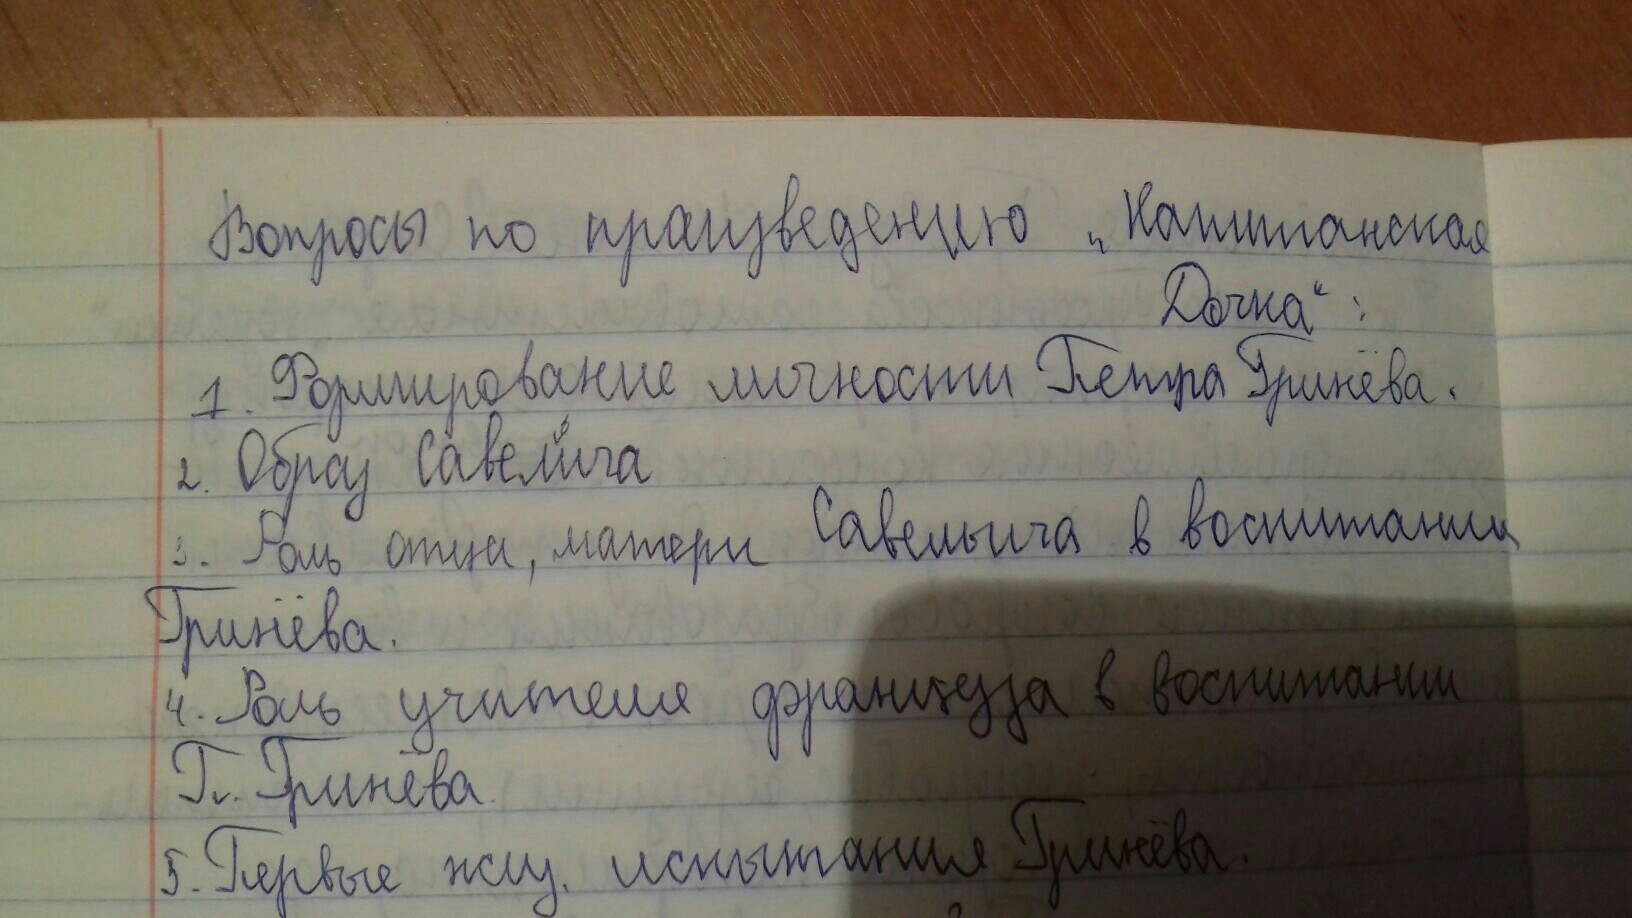 Вопросы по произведению „Капитанская
Дочка“:
1. Формирование личности Петра Гринёва.
2. Образ Савельича
3. Роль отца, матери Савельича в воспитании
Гринёва.
4. Роль учителя француза в воспитании
П. Гринёва.
5. Первые жиз. испытания Гринёва.